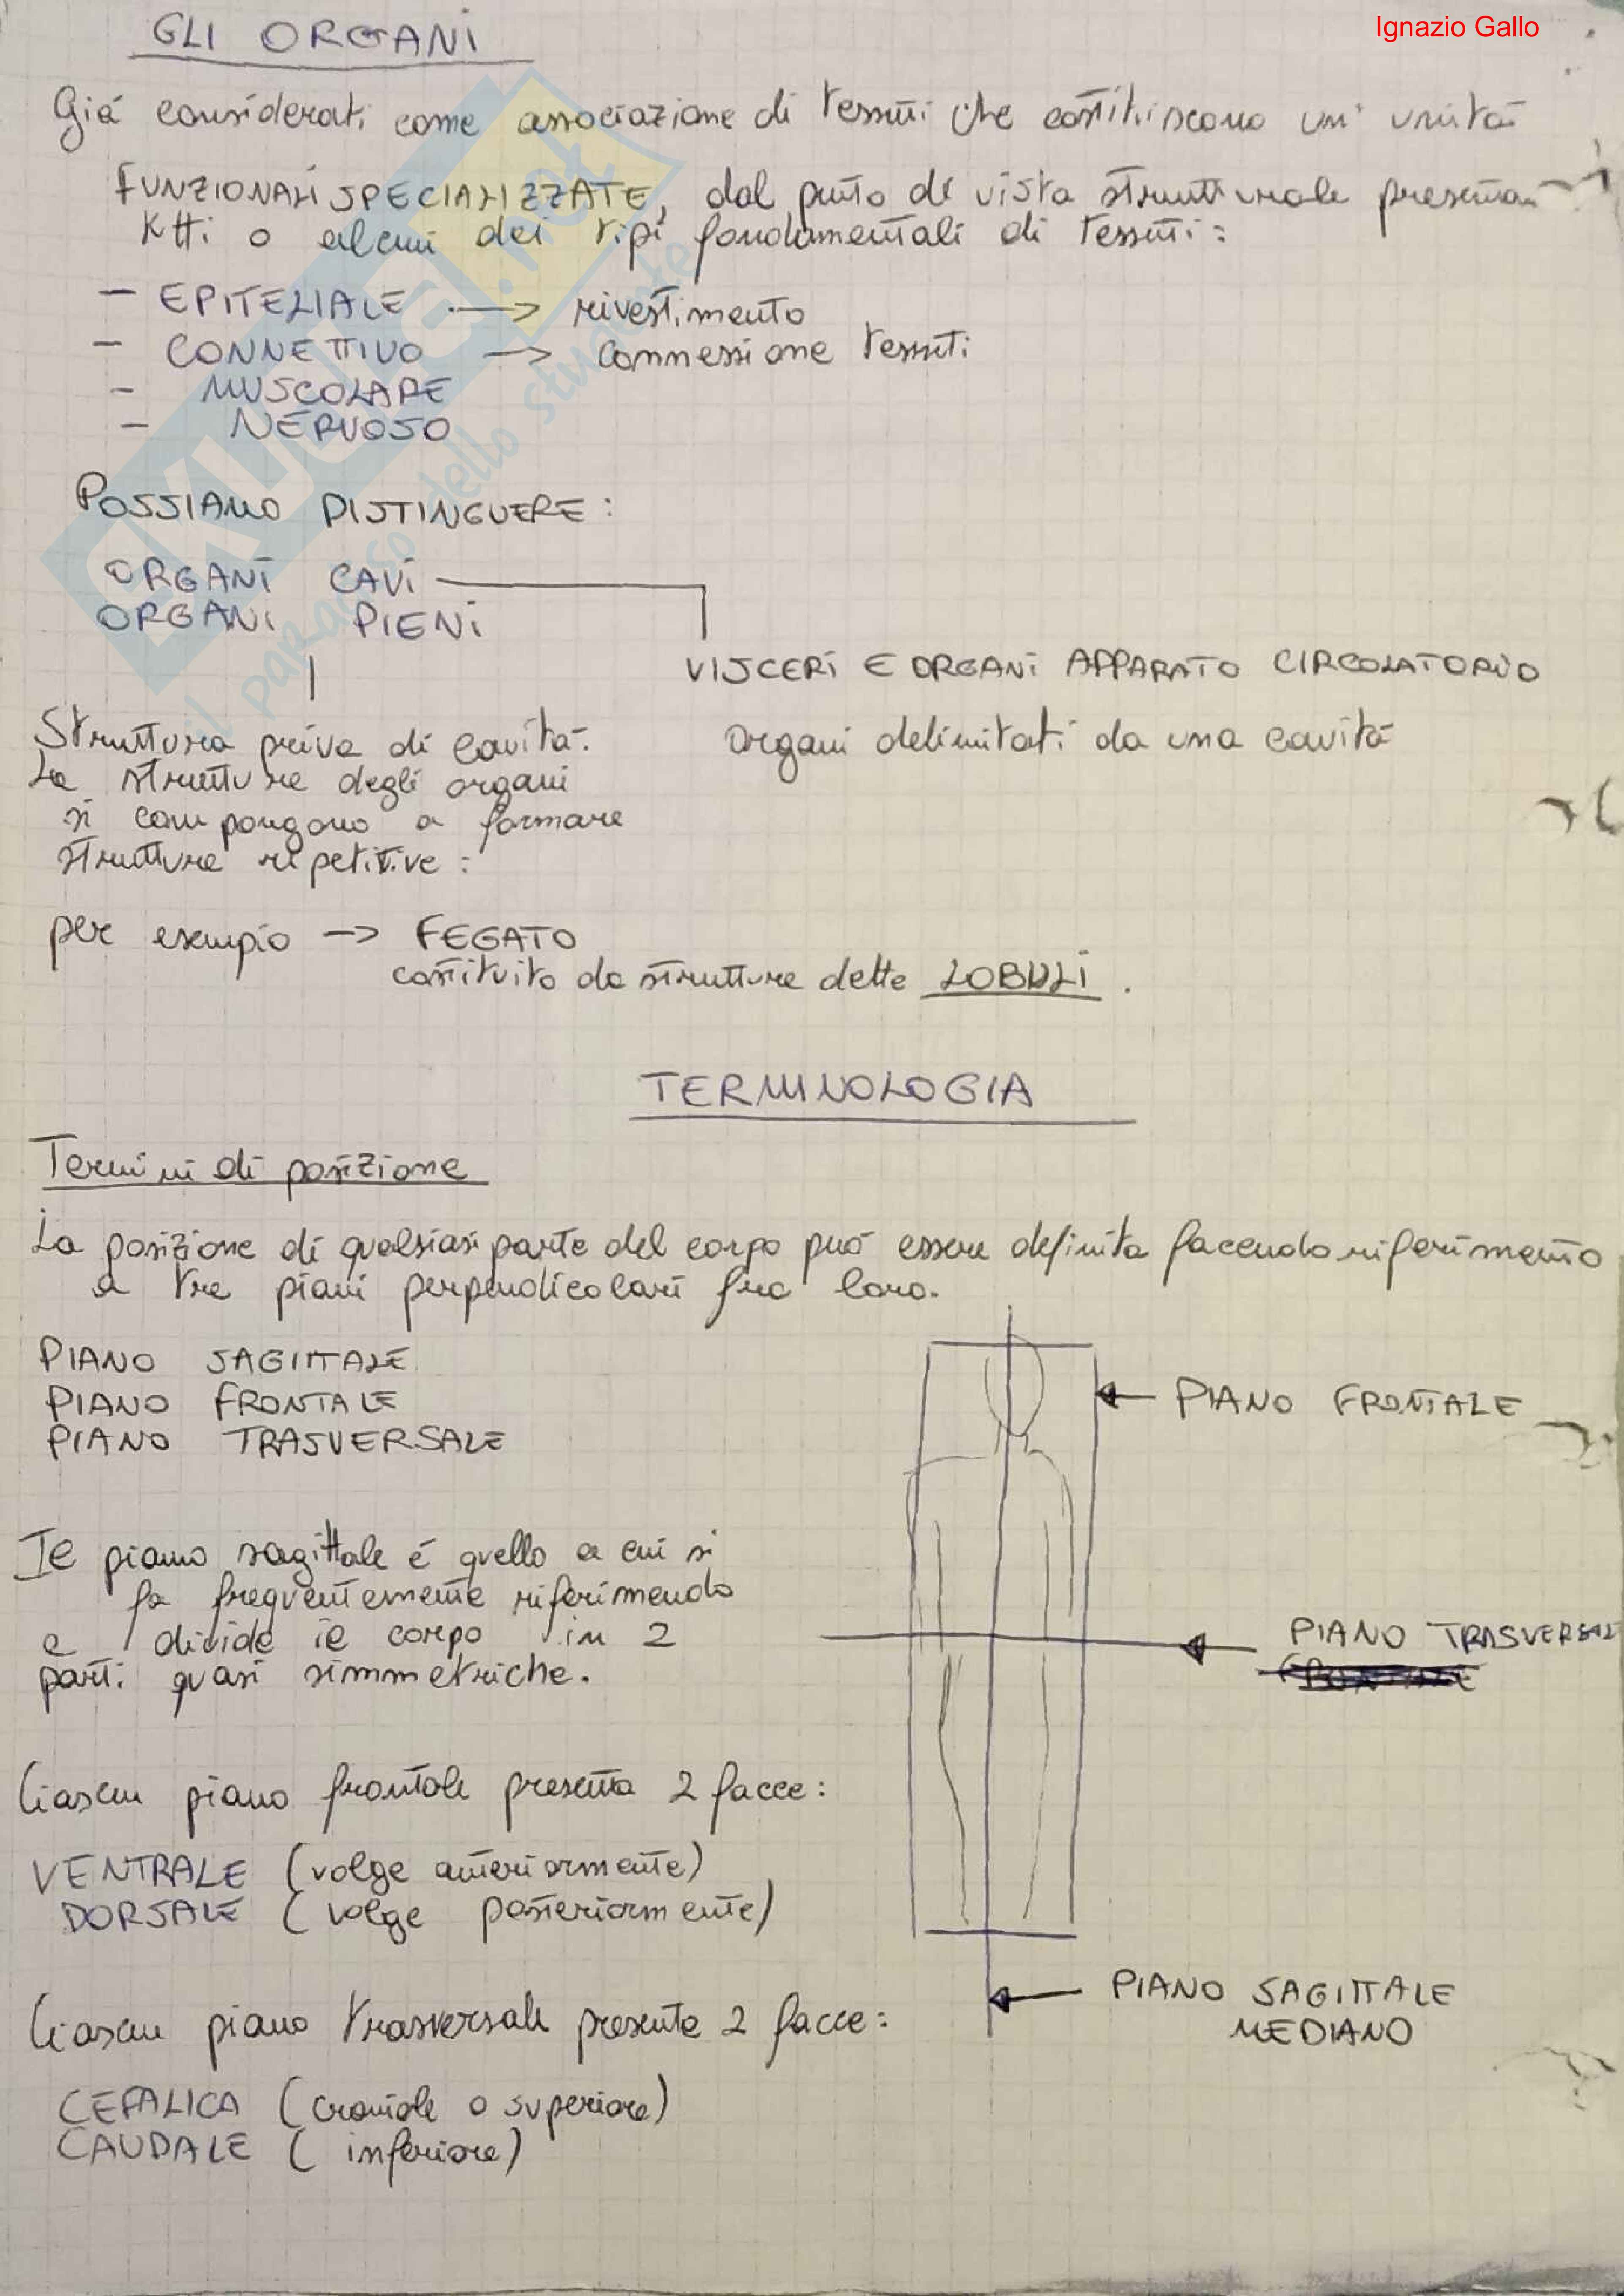 Ignazio Gallo
GLI ORGANI
Già considerati come associazione di tessuti che costituiscono un' unità
FUNZIONALI SPECIALIZZATE, dal punto di vista strutturale presentan
tutti o alcuni dei tipi fondamentali di tessuti:
- EPITELIALE -> rivestimento
- CONNETTIVO -> connessione tessuti
- MUSCOLARE
- NERVOSO
POSSIAMO DISTINGUERE:
ORGANI CAVI
ORGANI PIENI
VISCERI E ORGANI APPARATO CIRCOLATORIO
organi delimitati da una cavità
Struttura priva di cavità.
Le strutture degli organi
si compongono a formare
strutture ripetitive:
per esempio -> FEGATO
costituito da strutture dette LOBULI.
TERMINOLOGIA
Termini di posizione
La posizione di qualsiasi parte del corpo può essere definita facendo riferimento
a tre piani perpendicolari fra loro.
PIANO SAGITTALE
PIANO FRONTALE
PIANO TRASVERSALE
PIANO FRONTALE
Il piano sagittale è quello a cui si
fa frequentemente riferimendo
e divide il corpo in 2
parti quasi simmetriche.
PIANO TRASVERSALE
Ciascun piano frontale presenta 2 facce:
VENTRALE (volge anteriormente)
DORSALE (volge posteriormente)
PIANO SAGITTALE
MEDIANO
Ciascun piano trasversale presenta 2 facce:
CEFALICA (craniale o superiore)
CAUDALE (inferiore)
SKUOLA.net
il paradiso dello studente